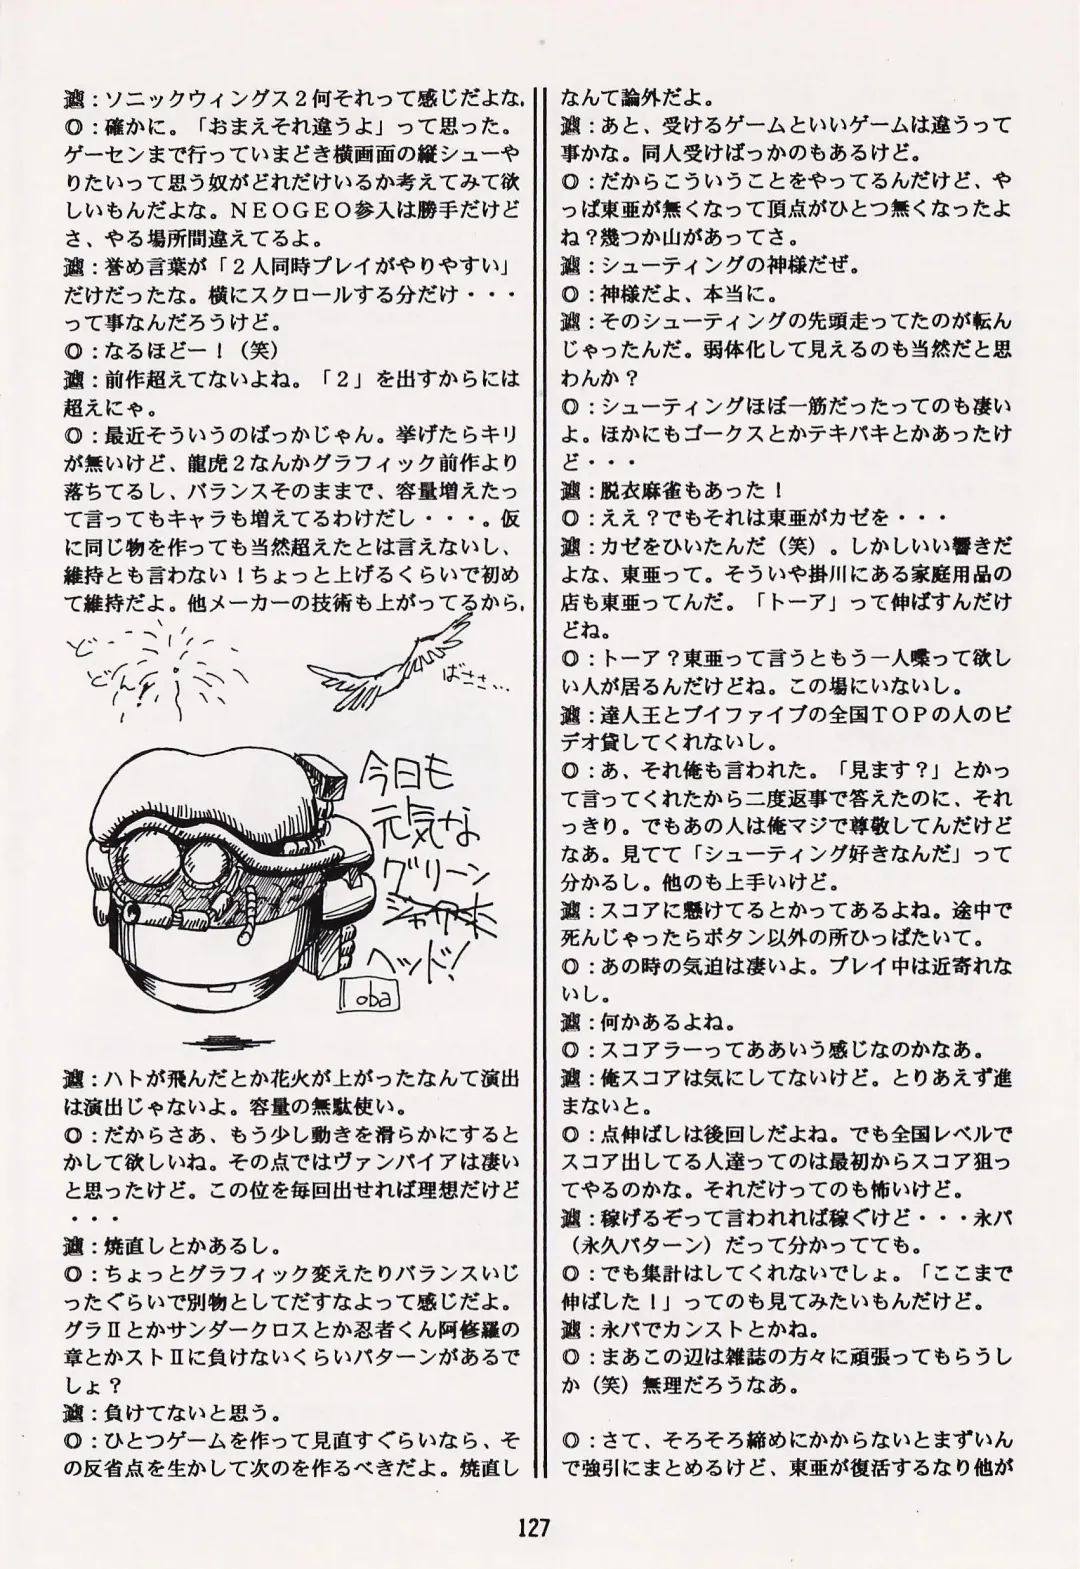 邀：ソニックウィングス２何それって感じだよな.
◎：確かに。「おまえそれ違うよ」って思った。
ゲーセンまで行っていまどき横画面の縦シューや
りたいって思う奴がどれだけいるか考えてみて欲
しいもんだよな。ＮＥＯＧＥＯ参入は勝手だけど
さ、やる場所間違えてるよ。
邀：誉め言葉が「２人同時プレイがやりやすい」
だけだったな。横にスクロールする分だけ・・・
って事なんだろうけど。
◎：なるほどー！（笑）
邀：前作超えてないよね。「２」を出すからには
超えにゃ。
◎：最近そういうのばっかじゃん。挙げたらキリ
が無いけど、龍虎２なんかグラフィック前作より
落ちてるし、バランスそのままで、容量増えたっ
て言ってもキャラも増えてるわけだし・・・。仮
に同じ物を作っても当然超えたとは言えないし、
維持とも言わない！ちょっと上げるくらいで初め
て維持だよ。他メーカーの技術も上がってるから.
ど
どん!
ばささ…
今日も
元気な
グリーン
ヘッド!
Ioba
邀：ハトが飛んだとか花火が上がったなんて演出
は演出じゃないよ。容量の無駄使い。
◎：だからさあ、もう少し動きを滑らかにすると
かして欲しいね。その点ではヴァンパイアは凄い
と思ったけど。この位を毎回出せれば理想だけど
・・・
邀：焼直しとかあるし。
◎：ちょっとグラフィック変えたりバランスいじ
ったぐらいで別物としてだすなよって感じだよ。
グラⅡとかサンダークロスとか忍者くん阿修羅の
章とかストⅡに負けないくらいパターンがあるで
しょ？
邀：負けてないと思う。
◎：ひとつゲームを作って見直すぐらいなら、そ
の反省点を生かして次のを作るべきだよ。焼直し
なんて論外だよ。
邀：あと、受けるゲームといいゲームは違うって
事かな。同人受けばっかのもあるけど。
◎：だからこういうことをやってるんだけど、や
っぱ東亜が無くなって頂点がひとつ無くなったよ
ね？幾つか山があってさ。
邀：シューティングの神様だぜ。
◎：神様だよ、本当に。
邀：そのシューティングの先頭走ってたのが転ん
じゃったんだ。弱体化して見えるのも当然だと思
わんか？
◎：シューティングほぼ一筋だったってのも凄い
よ。ほかにもゴークスとかテキパキとかあったけ
ど・・・
邀：脱衣麻雀もあった！
◎：ええ？でもそれは東亜がカゼを・・・
邀：カゼをひいたんだ（笑）。しかしいい響きだ
よな、東亜って。そういや掛川にある家庭用品の
店も東亜ってんだ。「トーア」って伸ばすんだけ
どね。
◎：トーア？東亜って言うともう一人喋って欲し
い人が居るんだけどね。この場にいないし。
邀：達人王とブイファイブの全国ＴＯＰの人のビ
デオ貸してくれないし。
◎：あ、それ俺も言われた。「見ます？」とかっ
て言ってくれたから二度返事で答えたのに、それ
っきり。でもあの人は俺マジで尊敬してんだけど
なあ。見てて「シューティング好きなんだ」って
分かるし。他のも上手いけど。
邀：スコアに懸けてるとかってあるよね。途中で
死んじゃったらボタン以外の所ひっぱたいて。
◎：あの時の気迫は凄いよ。プレイ中は近寄れな
いし。
邀：何かあるよね。
◎：スコアラーってああいう感じなのかなあ。
邀：俺スコアは気にしてないけど。とりあえず進
まないと。
◎：点伸ばしは後回しだよね。でも全国レベルで
スコア出してる人達ってのは最初からスコア狙っ
てやるのかな。それだけってのも怖いけど。
邀：稼げるぞって言われれば稼ぐけど・・・永パ
（永久パターン）だって分かってても。
◎：でも集計はしてくれないでしょ。「ここまで
伸ばした！」ってのも見てみたいもんだけど。
邀：永パでカンストとかね。
◎：まあこの辺は雑誌の方々に頑張ってもらうし
か（笑）無理だろうなあ。
◎：さて、そろそろ締めにかからないとまずいん
で強引にまとめるけど、東亜が復活するなり他が
127